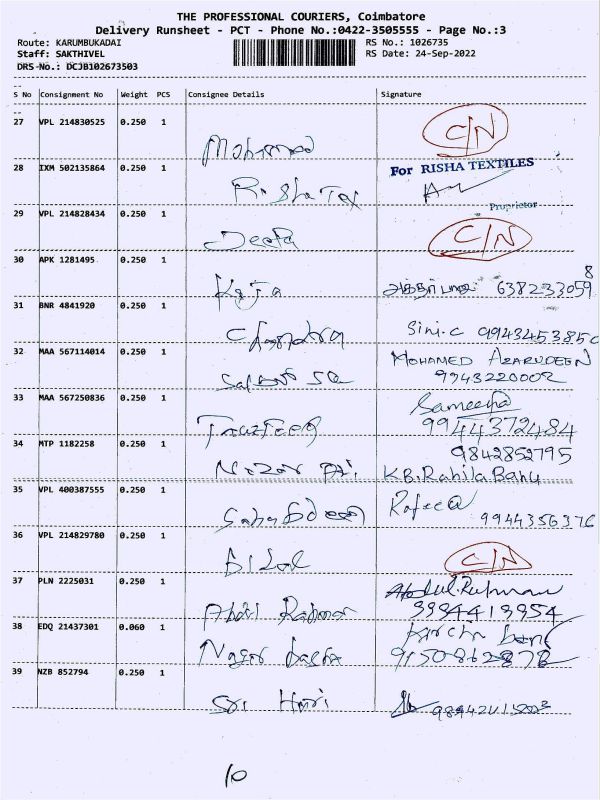 THE PROFESSIONAL COURIERS, Coimbatore
Delivery Runsheet - PCT - Phone No.:0422-3505555 - Page No.:3
Route: KARUMBUKADAI RS No.: 1026735
Staff: SAKTHIVEL RS Date: 24-Sep-2022
DRS-No.: DCJB102673503
S No Consignment No Weight PCS Consignee Details Signature
27 VPL 214830525 0.250 1 C/N
Mohamed
28 IXM 502135864 0.250 1 For RISHA TEXTILES
Risha Tex
Proprietor
29 VPL 214828434 0.250 1 C/N
30 APK 1281495 0.250 1
Kaja
31 BNR 4841920 0.250 1
Chandra Sini.c 9943453850
32 MAA 567114014 0.250 1 MOHAMED AZARUDEEN
9943220002
33 MAA 567250836 0.250 1 Sameena
9944372484
34 MTP 1182258 0.250 1 9842852795
K.B. Rahila Banu
35 VPL 400387555 0.250 1
9944356376
36 VPL 214829780 0.250 1 C/N
Bilal
37 PLN 2225031 0.250 1 Abdul.Rahman
Abdul Rahman 9994419954
38 EDQ 21437301 0.060 1
39 NZB 852794 0.250 1
Sri Hari
10